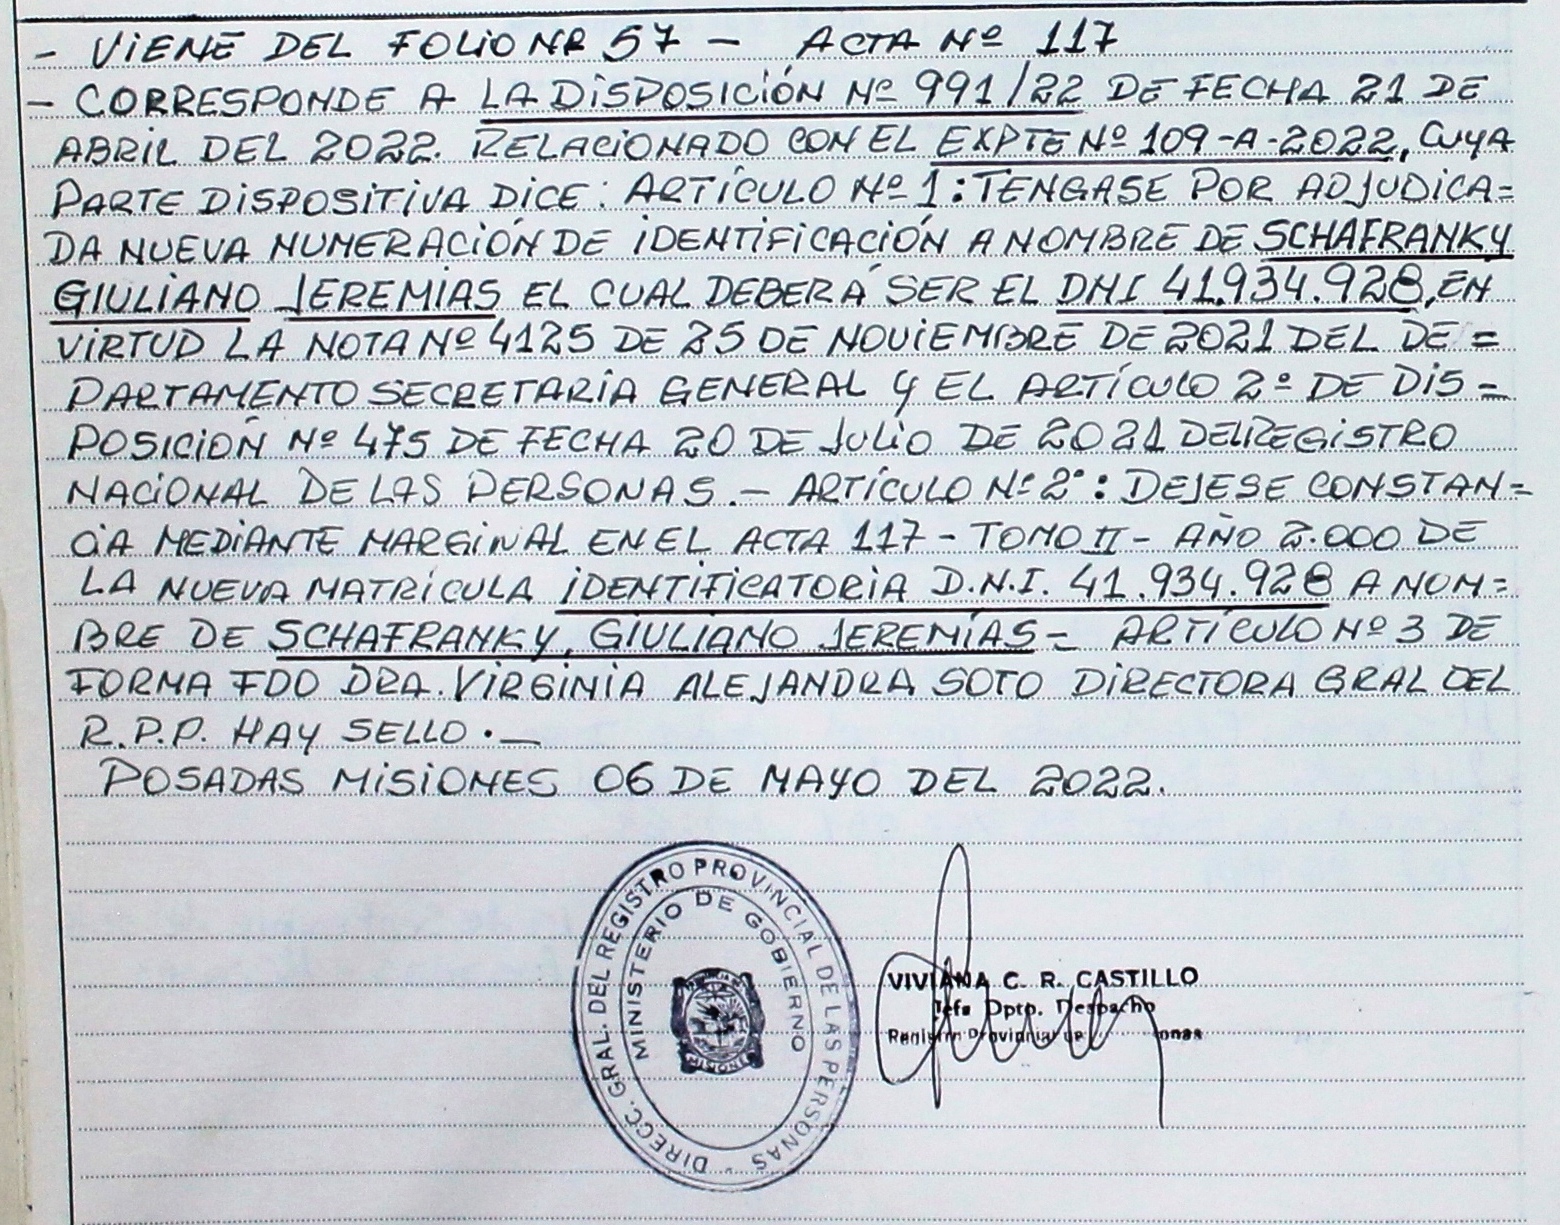 - VIENE DEL FOLIO NR 57 - ACTA Nº 117
- CORRESPONDE A LA DISPOSICIÓN Nº 991/22 DE FECHA 21 DE
ABRIL DEL 2022. RELACIONADO CON EL EXPTE Nº 109-A-2022, CUYA
PARTE DISPOSITIVA DICE: ARTÍCULO Nº 1: TENGASE POR ADJUDICA=
DA NUEVA NUMERACIÓN DE IDENTIFICACIÓN A NOMBRE DE SCHAFRANKY
GIULIANO JEREMIAS EL CUAL DEBERÁ SER EL DNI 41.934.928, EN
VIRTUD LA NOTA Nº 4125 DE 25 DE NOVIEMBRE DE 2021 DEL DE=
PARTAMENTO SECRETARÍA GENERAL Y EL ARTÍCULO 2º DE DIS=
POSICIÓN Nº 475 DE FECHA 20 DE JULIO DE 2021 DEL REGISTRO
NACIONAL DE LAS PERSONAS.- ARTÍCULO Nº 2°: DEJESE CONSTAN=
CIA MEDIANTE MARGINAL EN EL ACTA 117 - TOMO II - AÑO 2.000 DE
LA NUEVA MATRÍCULA IDENTIFICATORIA D.N.I. 41.934.928 A NOM=
BRE DE SCHAFRANKY, GIULIANO JEREMÍAS= ARTÍCULO Nº 3 DE
FORMA FDO DRA. VIRGINIA ALEJANDRA SOTO DIRECTORA GRAL DEL
R.P.P. HAY SELLO.—
POSADAS MISIONES 06 DE MAYO DEL 2022.
DIRECC. GRAL. DEL REGISTRO PROVINCIAL DE LAS PERSONAS -
MINISTERIO DE GOBIERNO
VIVIANA C. R. CASTILLO
Jefa Dpto. Despacho
Registro Provincial de